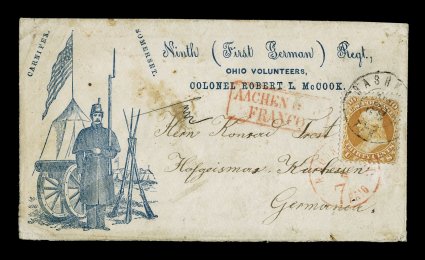 CARNIFEX.
SOMERSET.
Ninth (First German) Regt.,
OHIO VOLUNTEERS,
COLONEL ROBERT L. McCOOK.
AACHEN
FRANCO
WASH
Herrn Konrad Trost
Hofgeismar Kurhessen
Germania
7